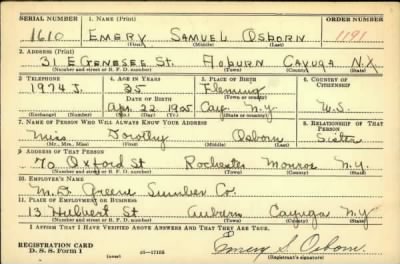 SERIAL NUMBER 1. NAME (Print) ORDER NUMBER
1610 EMERY SAMUEL OSBORN 1191
(First) (Middle) (Last)
2. ADDRESS (Print)
31 E GENESEE ST. AUBURN CAYUGA N.Y.
(Number and street or R. F. D. number) (Town) (County) (State)
3. TELEPHONE 4. AGE IN YEARS 5. PLACE OF BIRTH 6. COUNTRY OF CITIZENSHIP
1974 J. 35 Fleming
DATE OF BIRTH
Apr. 22 1905 Cay. N.Y. U.S.
(Exchange) (Number) (Mo.) (Day) (Yr.) (State or country)
7. NAME OF PERSON WHO WILL ALWAYS KNOW YOUR ADDRESS 8. RELATIONSHIP OF THAT PERSON
Miss Dorothy Osborn Sister
(Mr., Mrs., Miss) (First) (Middle) (Last)
9. ADDRESS OF THAT PERSON
70 Oxford St Rochester Monroe N.Y.
(Number and street or R. F. D. number) (Town) (County) (State)
10. EMPLOYER'S NAME
Greene Lumber Co.
11. PLACE OF EMPLOYMENT OR BUSINESS
13 Hulbert St Auburn Cayuga N.Y.
(Number and street or R. F. D. number) (Town) (County) (State)
I AFFIRM THAT I HAVE VERIFIED ABOVE ANSWERS AND THAT THEY ARE TRUE.
REGISTRATION CARD
D. S. S. FORM 1 (over) 16—17105 Emery S. Osborn
(Registrant's signature)